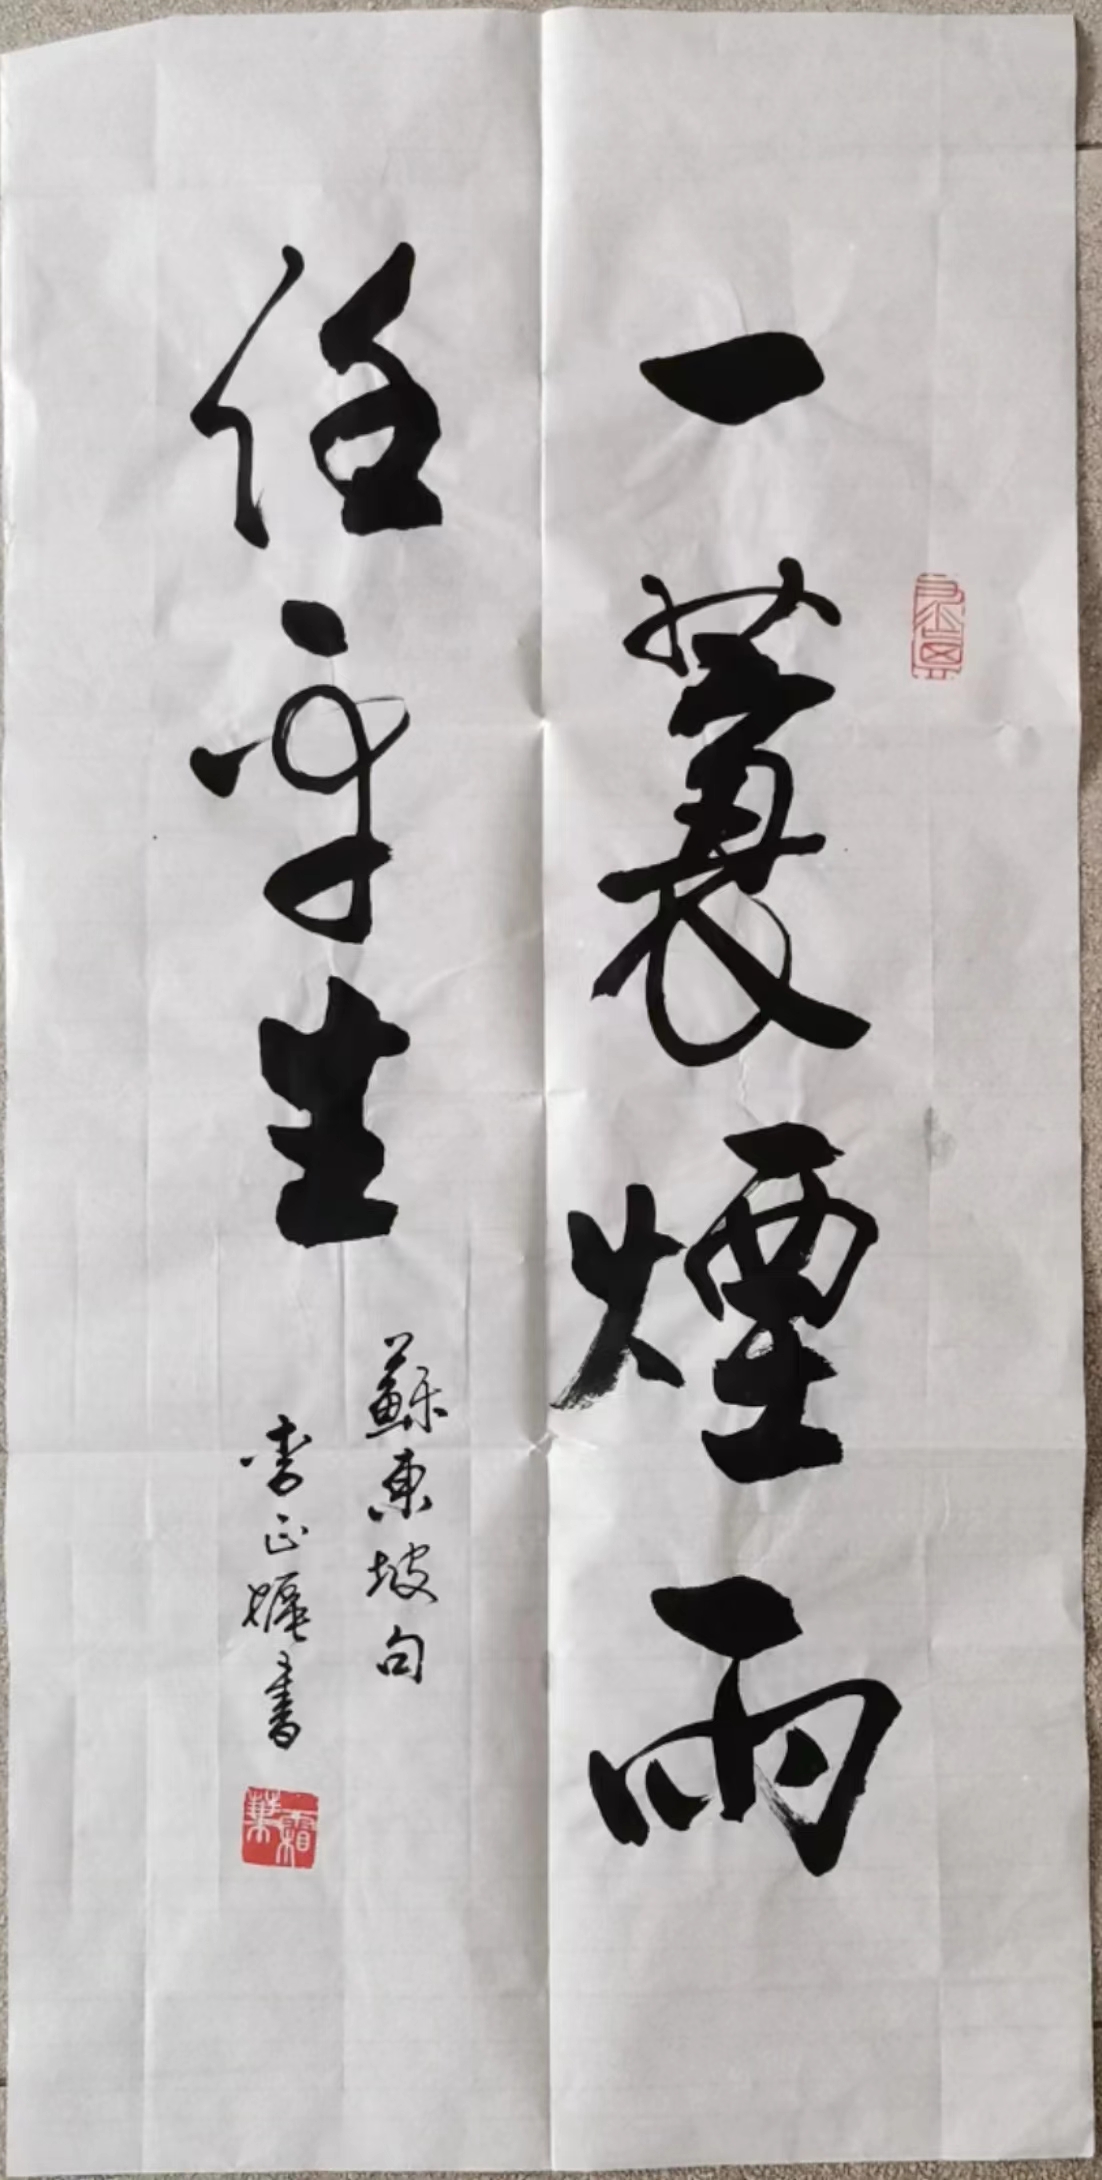 一蓑煙雨
任平生
蘇東坡句
李正書
霜葉